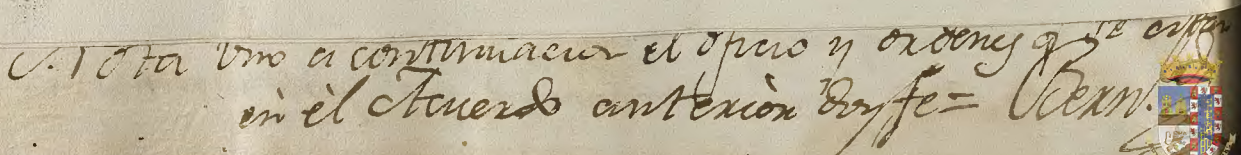 Nota Uno a continuacion el oficio y ordenes q. se
en èl Acuerdo anterior doy fe =